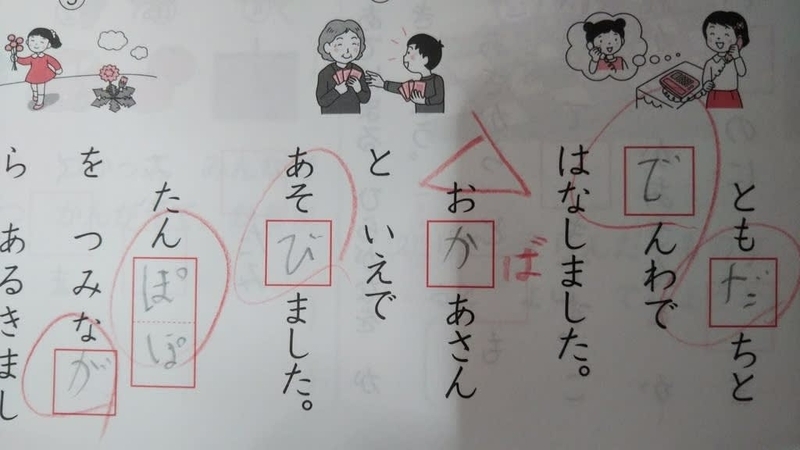 ともだちと
でんわで
はなしました。
おかあさん
ば
といえで
あそびました。
たんぽぽ
をつみなが
らあるきまし